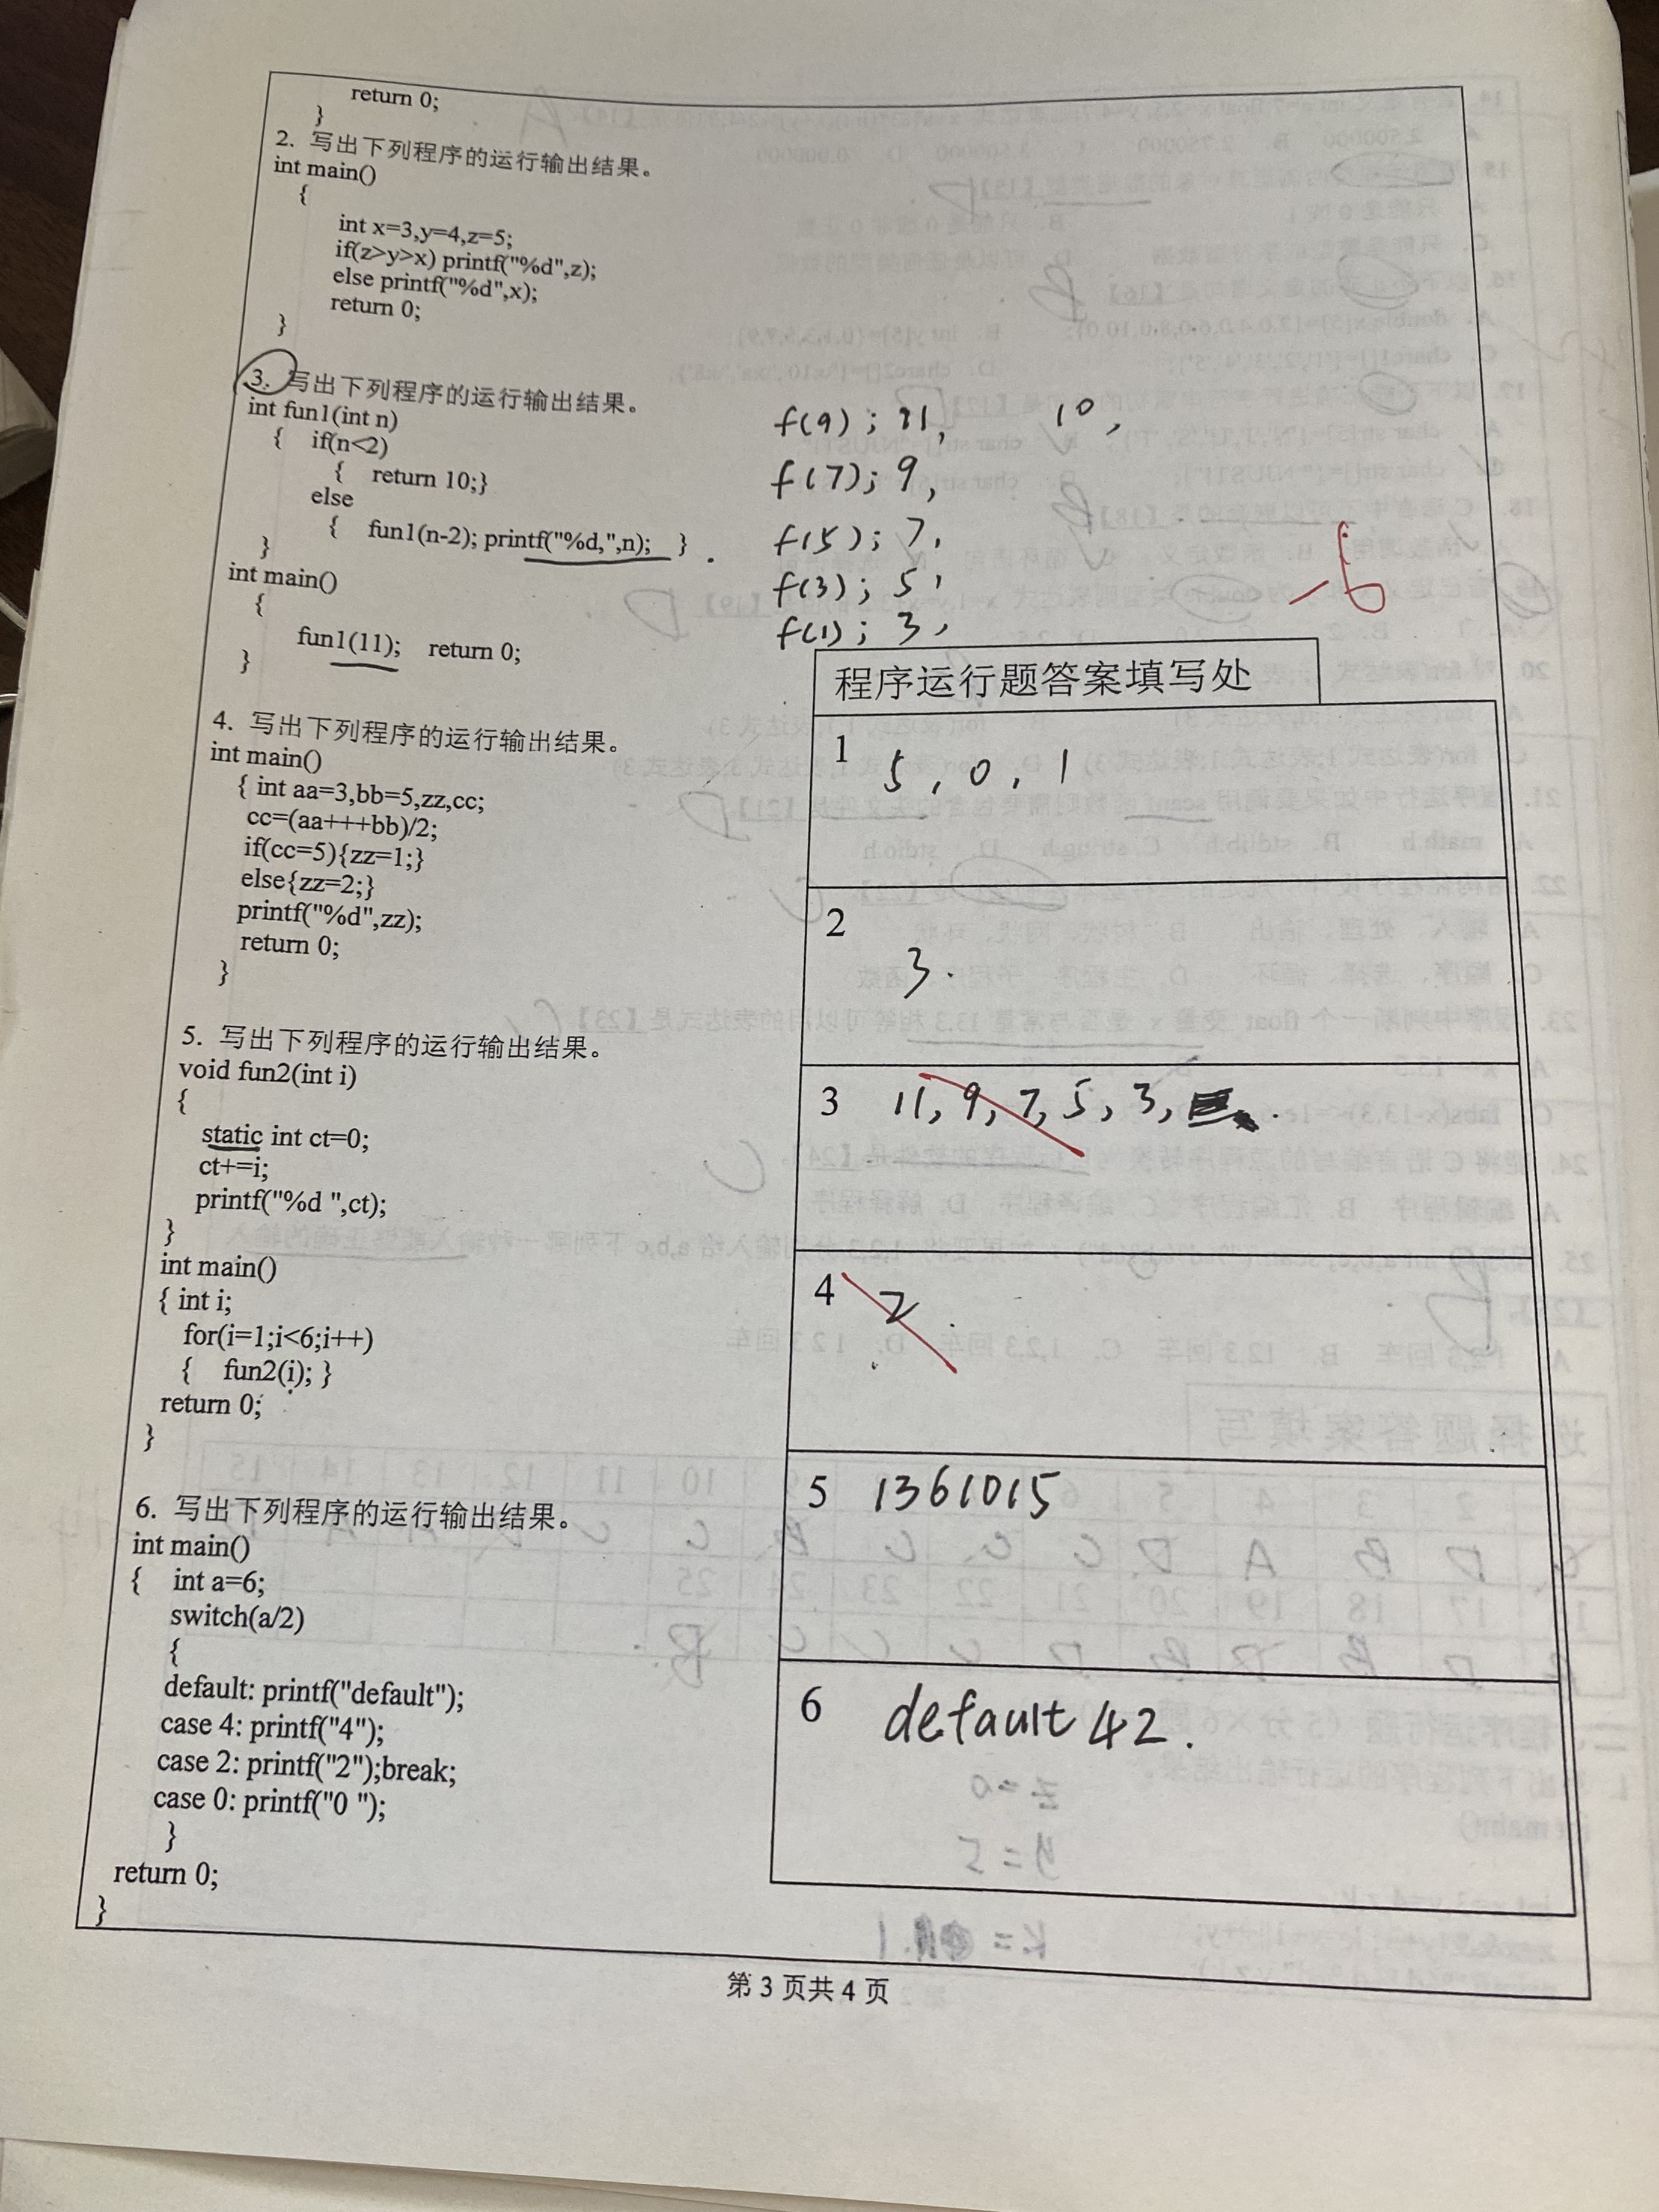 return 0;
}
2. 写出下列程序的运行输出结果。
int main()
{
int x=3,y=4,z=5;
if(z>y>x) printf("%d",z);
else printf("%d",x);
return 0;
}
3. 写出下列程序的运行输出结果。
int fun1(int n)
{ if(n<2)
{ return 10;}
else
{ fun1(n-2); printf("%d,",n); }
}
int main()
{
fun1(11); return 0;
}
f(9); 11, 10,
f(7); 9,
f(5); 7,
f(3); 5,
f(1); 3,
-6
4. 写出下列程序的运行输出结果。
int main()
{ int aa=3,bb=5,zz,cc;
cc=(aa+++bb)/2;
if(cc=5){zz=1;}
else{zz=2;}
printf("%d",zz);
return 0;
}
5. 写出下列程序的运行输出结果。
void fun2(int i)
{
static int ct=0;
ct+=i;
printf("%d ",ct);
}
int main()
{ int i;
for(i=1;i<6;i++)
{ fun2(i); }
return 0;
}
6. 写出下列程序的运行输出结果。
int main()
{ int a=6;
switch(a/2)
{
default: printf("default");
case 4: printf("4");
case 2: printf("2");break;
case 0: printf("0 ");
}
return 0;
}
程序运行题答案填写处
1 5, 0, 1
2 3.
3 11, 9, 7, 5, 3,
4 2
5 1361015
6 default 42.
第 3 页共 4 页